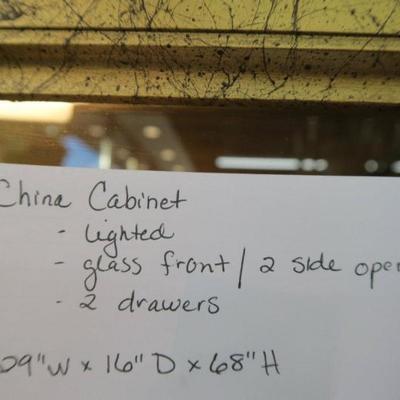 China Cabinet
- lighted
- glass front / 2 side ope
- 2 drawers
09"W x 16" D x 68" H